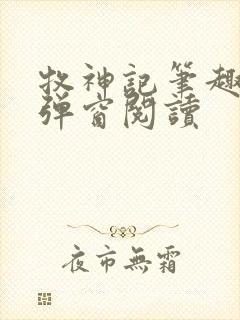 牧神記筆趣
彈窗閱讀
夜市無霜